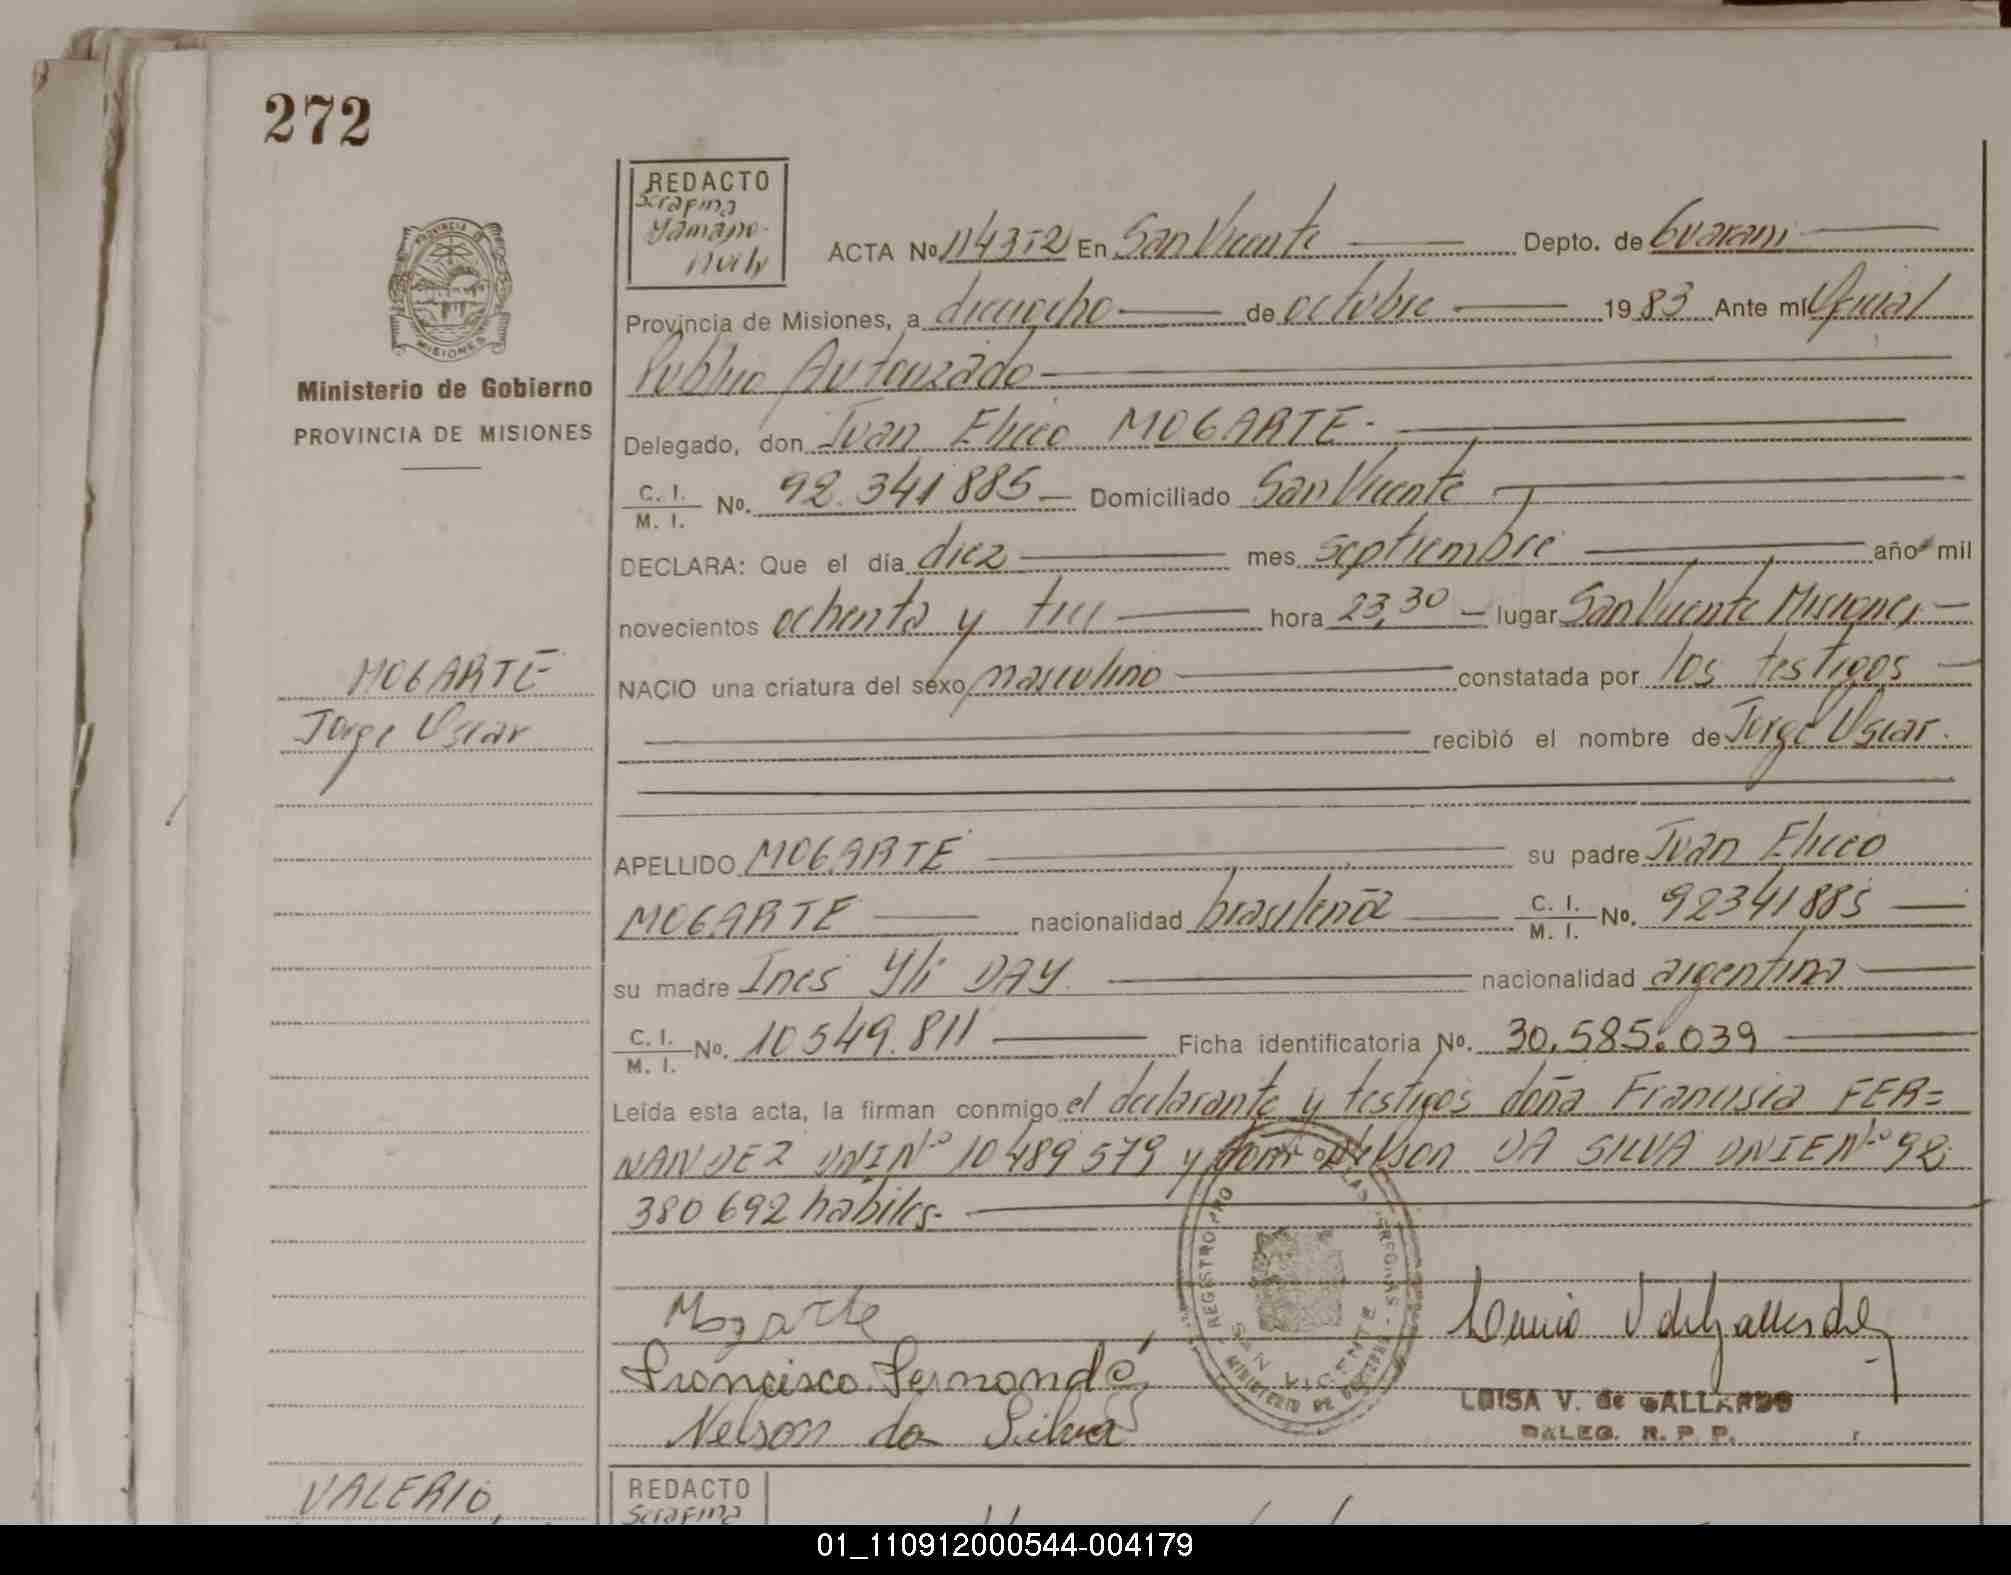 272
REDACTO
Serafina
ACTA No 1143-2 En San Vicente Depto. de Guarani
Provincia de Misiones, a dieciocho de octubre 1983 Ante mí Oficial
Publico Autorizado
Ministerio de Gobierno
PROVINCIA DE MISIONES
Delegado, don Juan Eliceo MOGARTE-
C. I.
M. I. No. 92.341885 Domiciliado San Vicente
DECLARA: Que el día diez mes septiembre año mil
novecientos ochenta y tres hora 23,30 lugar San Vicente Misiones
MOGARTE
NACIO una criatura del sexo masculino constatada por los testigos
Jorge Oscar
recibió el nombre de Jorge Oscar.
APELLIDO MOGARTE su padre Juan Eliceo
MOGARTE nacionalidad brasileña C. I.
M. I. No. 92341885
su madre Ines Yli DAY. nacionalidad argentina
C. I.
M. I. No. 10549.811 Ficha identificatoria No. 30.585.039
Leída esta acta, la firman conmigo el declarante y testigos doña Francisca FER=
NANDEZ DNI Nº 10489579 y don Nelson DA SILVA DNIE Nº 92.
380692 habiles-
REGISTRO PRO LAS PERSONAS
SAN VICENTE
MINISTERIO DE GOBIERNO
Mogarte
Francisco Fernandez
Nelson da Silva
LUISA V. de GALLARDO
DALEG. R. P. P.
VALERIO,
REDACTO
Serafina
01_110912000544-004179